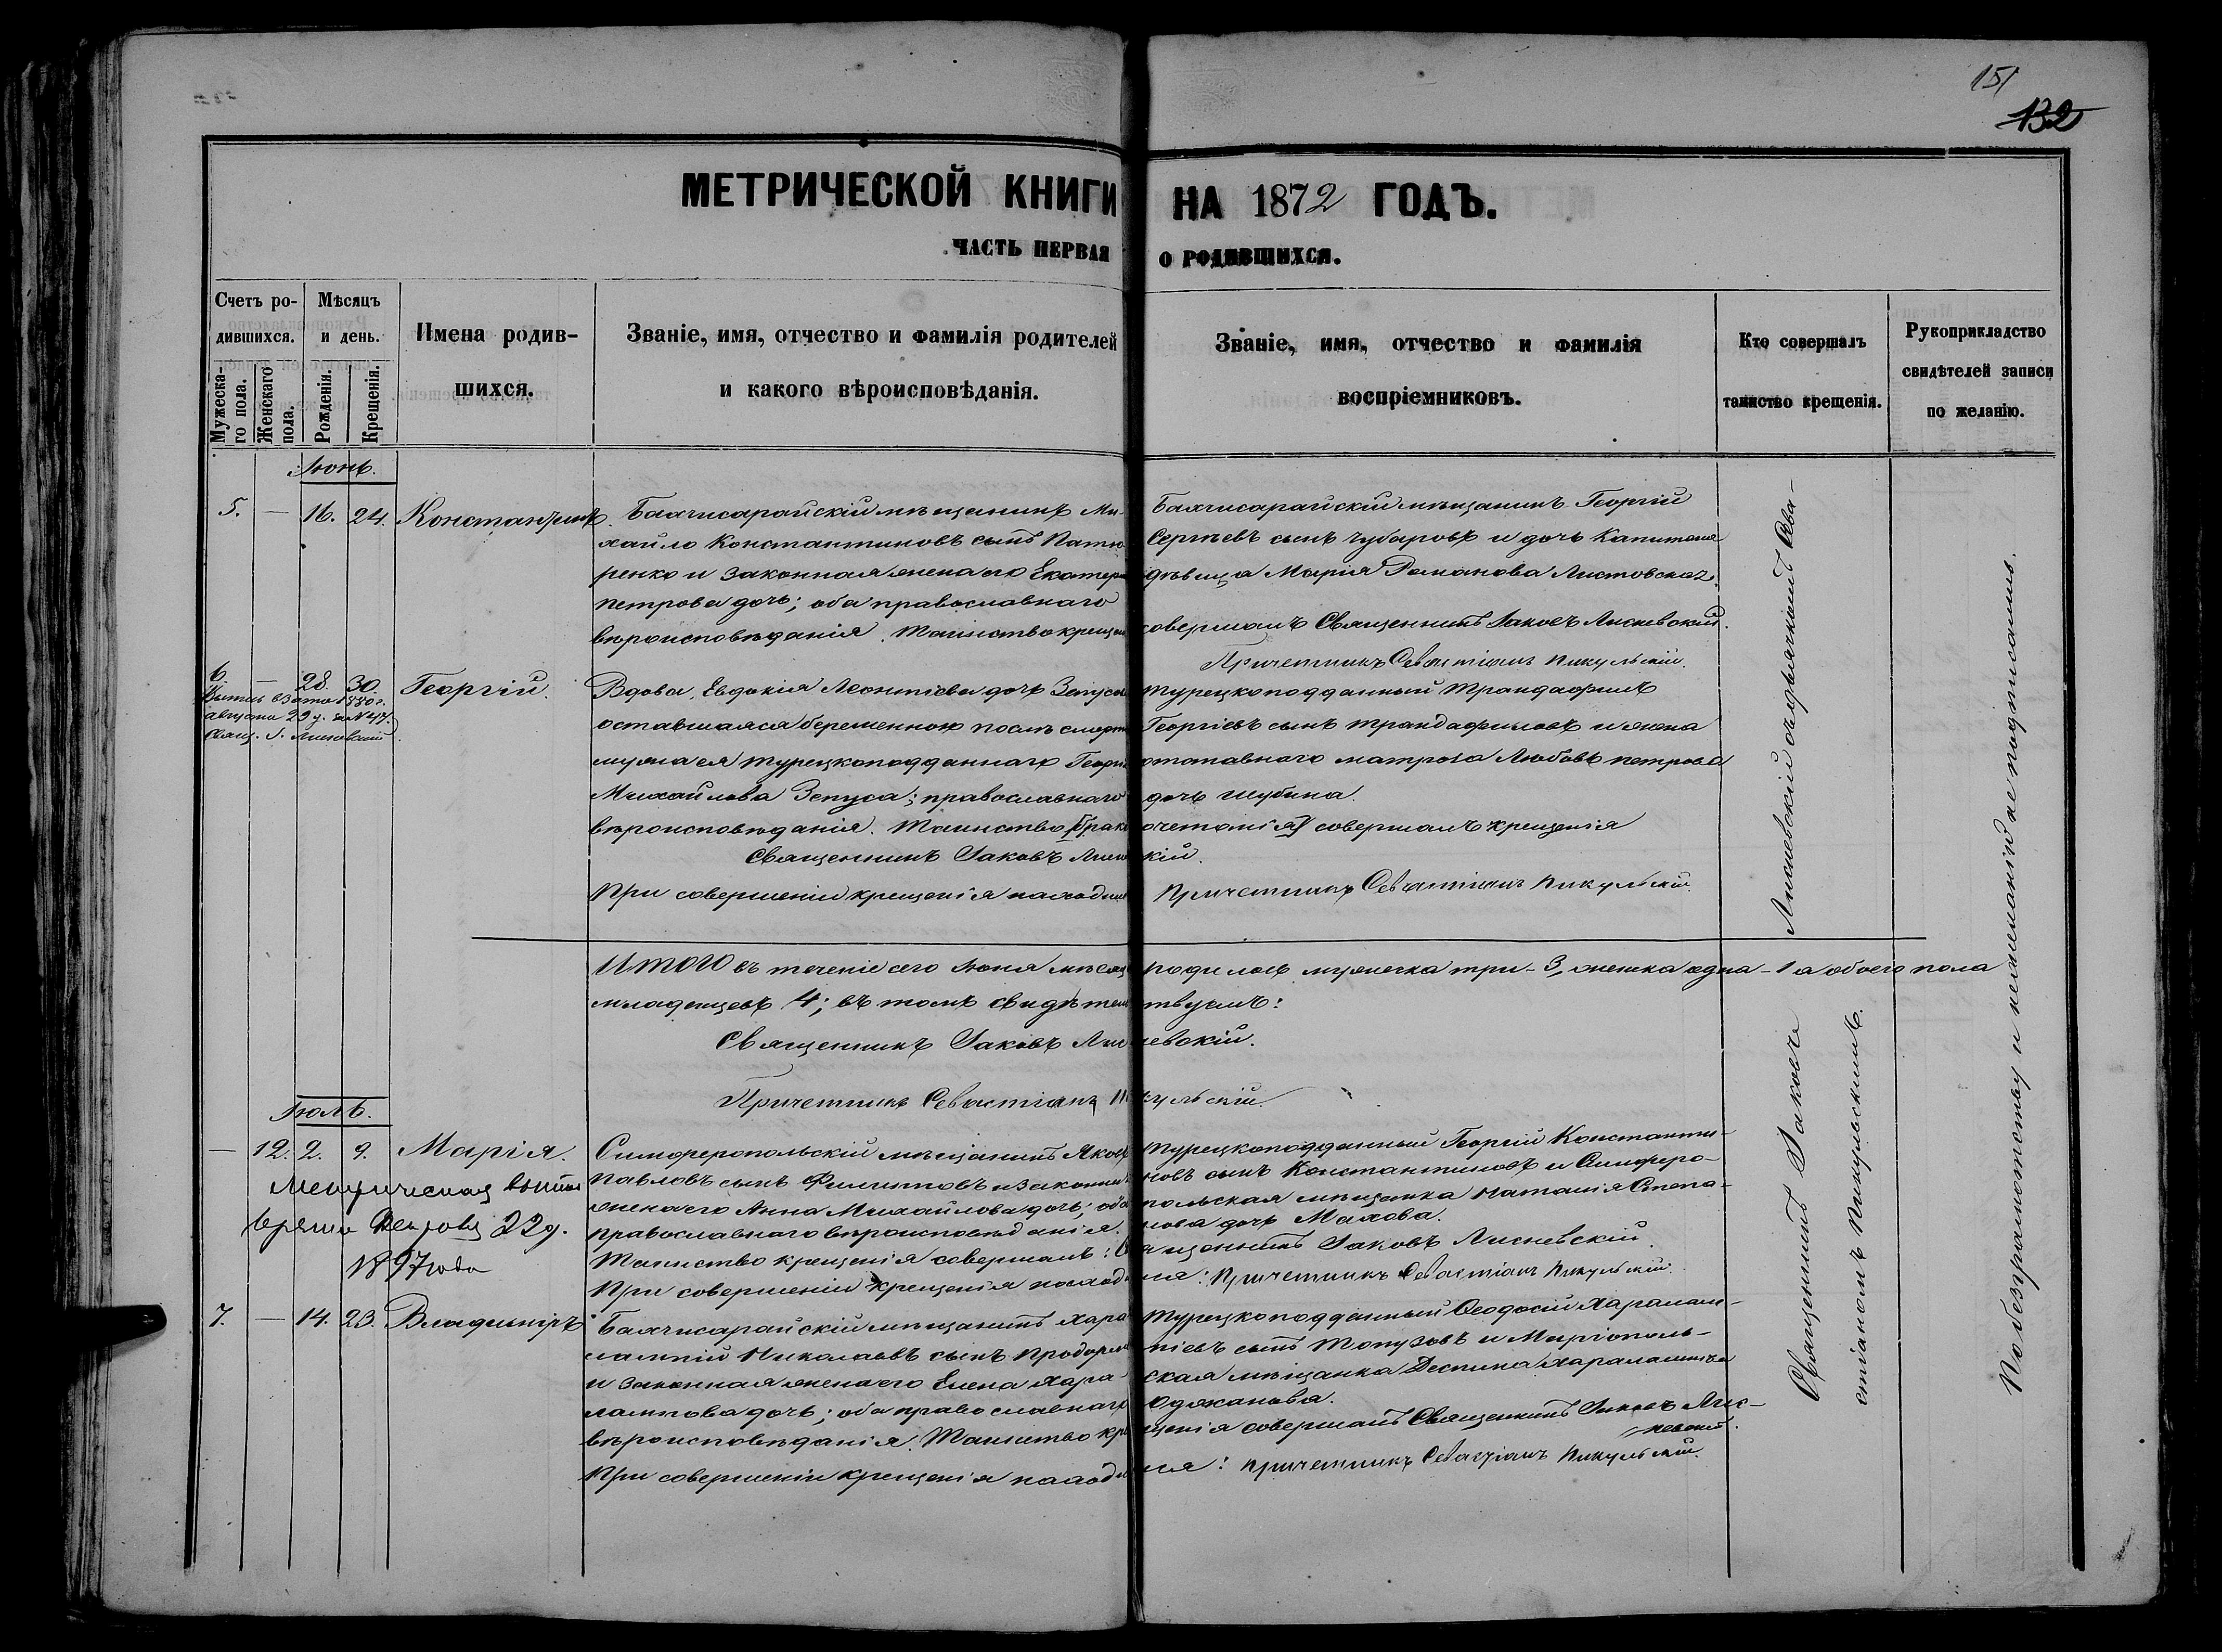 151
132
МЕТРИЧЕСКОЙ КНИГИ НА 1872 ГОДЪ.
ЧАСТЬ ПЕРВАЯ О РОДИВШИХСЯ.
Счетъ ро-
дившихся.
Мужеска-
го пола.
Женскаго
пола.
Мѣсяцъ
и день.
Рожденія.
Крещенія.
Имена родив-
шихся.
Званіе, имя, отчество и фамилія родителей
и какого вѣроисповѣданія.
Званіе, имя, отчество и фамилія
воспріемниковъ.
Кто совершалъ
таинство крещенія.
Рукоприкладство
свидѣтелей записи
по желанію.
Іюнь.
5. — 16. 24. Константинъ.
Бахчисарайскій мѣщанинъ Ми-
хайло Константиновъ сынъ
ренко и законная жена его Екатери
Петрова дочь; оба православнаго
вѣроисповѣданія. Таинство крещен
Бахчисарайскій мѣщанинъ Георгій
Сергѣевъ сынъ Чубаровъ и дочь Капитана
дѣвица Марія Романова Листовская.
совершалъ Священникъ Іаковъ Лисневскій.
Причетникъ Севастіанъ Пикульскій.
6. — 28. 30. Георгій.
29 д. за № 47.
Свящ. І. Лисневскій
Вдова, Евдокія Леонтіева дочь
оставшаяся беременною послѣ смерти
мужа ея турецкоподданнаго Георгі
Михайлова Зепуса; православнаго
вѣроисповѣданія. Таинство /брако
Священникъ Іаковъ Лисне
При совершеніи крещенія находил
Турецкоподданный Трандафилъ
Георгіевъ сынъ Трандафиловъ и жена
отставного матроса Любовь Петрова
дочь Шубина.
сочетанія/ совершалъ крещенія
кій.
Причетникъ Севастіанъ Пикульскій.
Итого въ теченіе сего Іюня мѣсяца родилось мужеска три - 3, женска одна - 1 а обоего пола
младенцевъ 4; въ томъ свидѣтельствуемъ:
Священникъ Іаковъ Лисневскій.
Причетникъ Севастіанъ Пикульскій.
Іюль.
— 12. 2. 9. Марія.
Метрическая выпись
22 д.
1897 года
Симферопольскій мѣщанинъ Яковъ
Павловъ сынъ Филипповъ и законная
жена его Анна Михайлова дочь; оба
православнаго вѣроисповѣданія.
Таинство крещенія совершалъ: Священникъ Іаковъ Лисневскій.
При совершеніи крещенія находился: Причетникъ Севастіанъ Пикульскій.
Турецкоподданный Георгій Константи-
новъ сынъ Константиновъ и Симферо-
польская мѣщанка Наталія Степа-
нова дочь Махова.
7. — 14. 23. Владиміръ
Бахчисарайскій мѣщанинъ Хара
лампій Николаевъ сынъ
и законная жена его Елена Хара-
лампова дочь; оба православнаго
вѣроисповѣданія. Таинство кре
При совершеніи крещенія находи
Турецкоподданный Ѳеодосій Харалам-
піевъ сынъ Топузовъ и Маріуполь-
ская мѣщанка Деспина Харалампіева
Оджакова.
щенія совершалъ Священникъ Іаковъ Лис-
невскій.
лся: Причетникъ Севастіанъ Пикульскій.
Священникъ Іаковъ Лисневскій съ Сева-
стіаномъ Пикульскимъ.
По безграмотству и нежеланію не подписались.